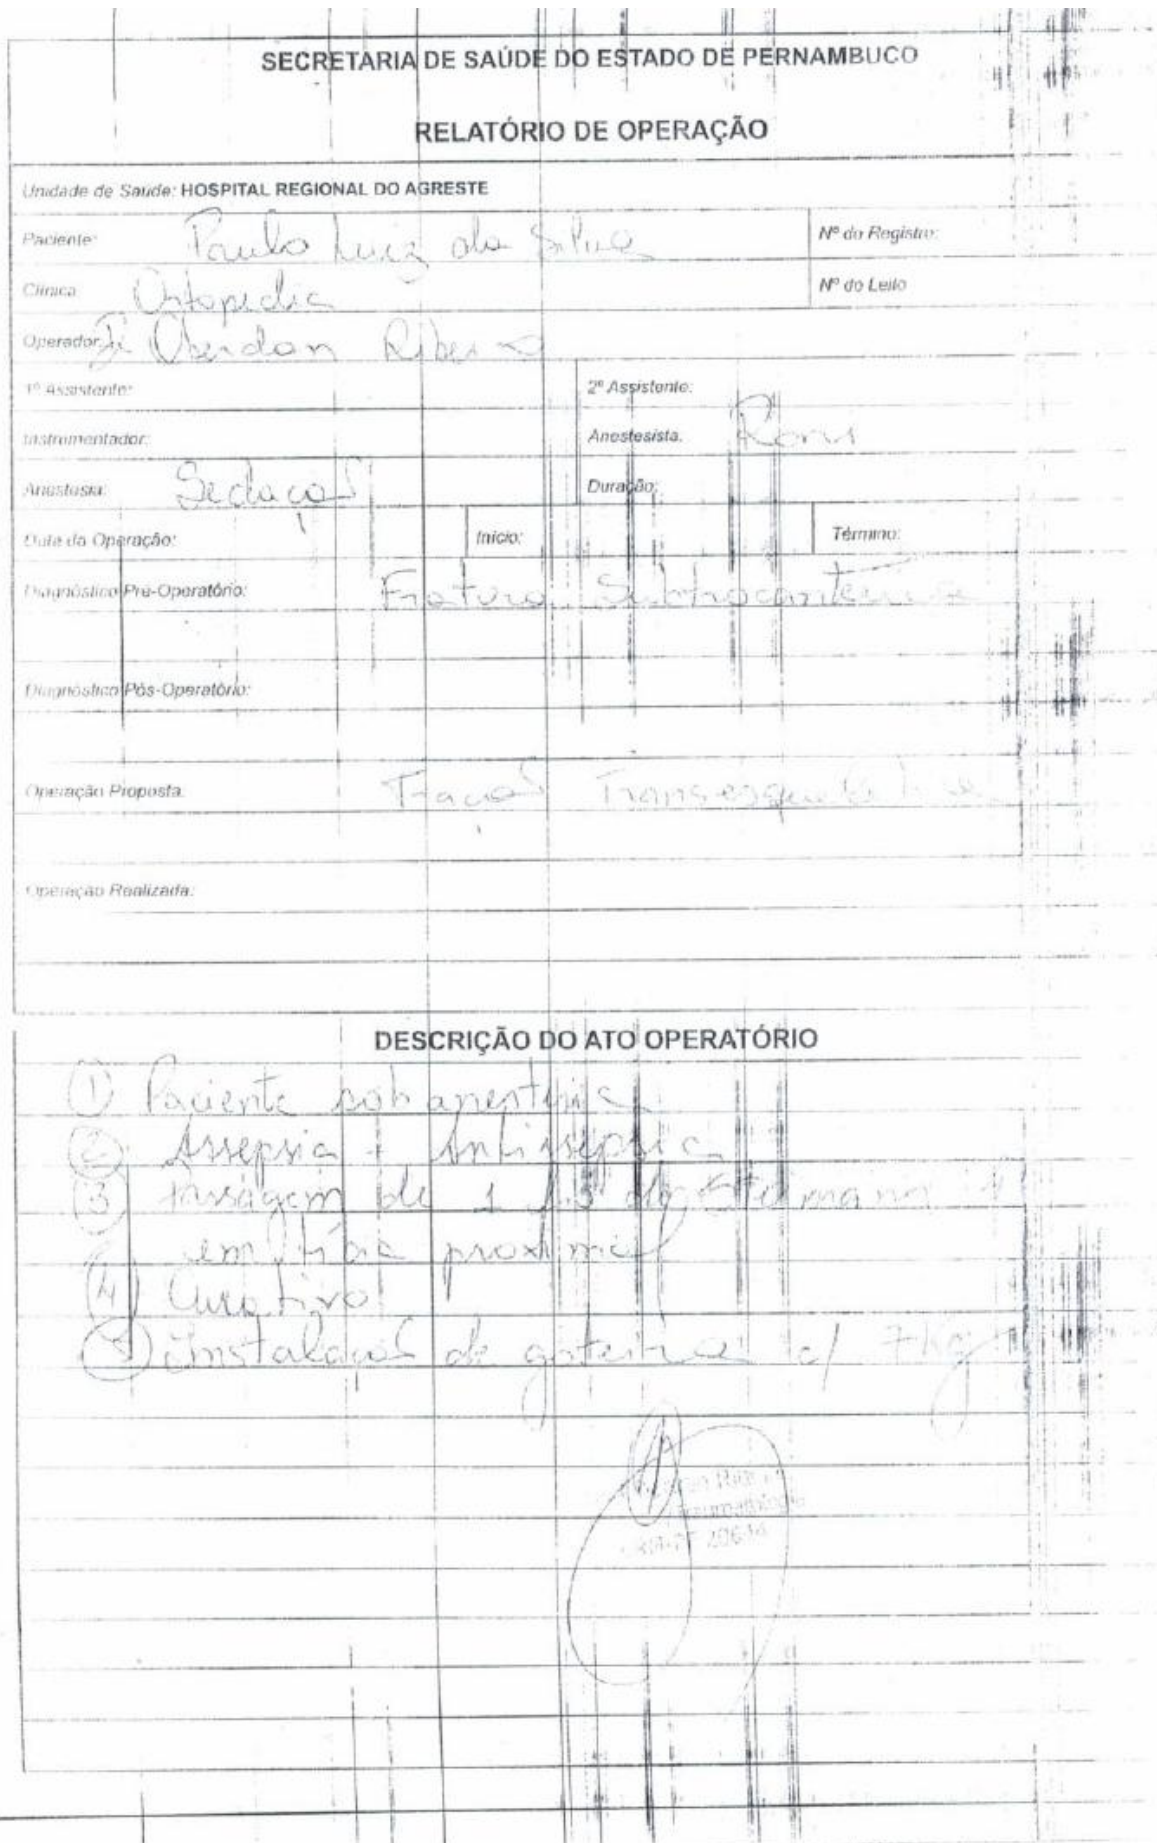 SECRETARIA DE SAÚDE DO ESTADO DE PERNAMBUCO
RELATÓRIO DE OPERAÇÃO
Unidade de Saúde: HOSPITAL REGIONAL DO AGRESTE
Paciente: Paulo Luiz da Silva Nº do Registro:
Clínica Ortopedia Nº do Leito
Operador: Oberdan Ribeiro
1º Assistente: 2º Assistente:
Instrumentador: Anestesista:
Anestesia: Sedação Duração:
Data da Operação: Início: Término:
Diagnóstico Pré-Operatório: Fratura Subtrocanterica
Diagnóstico Pós-Operatório:
Operação Proposta: Tração Transesquelética
Operação Realizada:
DESCRIÇÃO DO ATO OPERATÓRIO
① Paciente sob anestesia
② Assepsia + Antissepsia
③ Passagem de 1 fio de
em tíbia proximal
④ Curativo
⑤ Instalação de goteira c/ 7kg